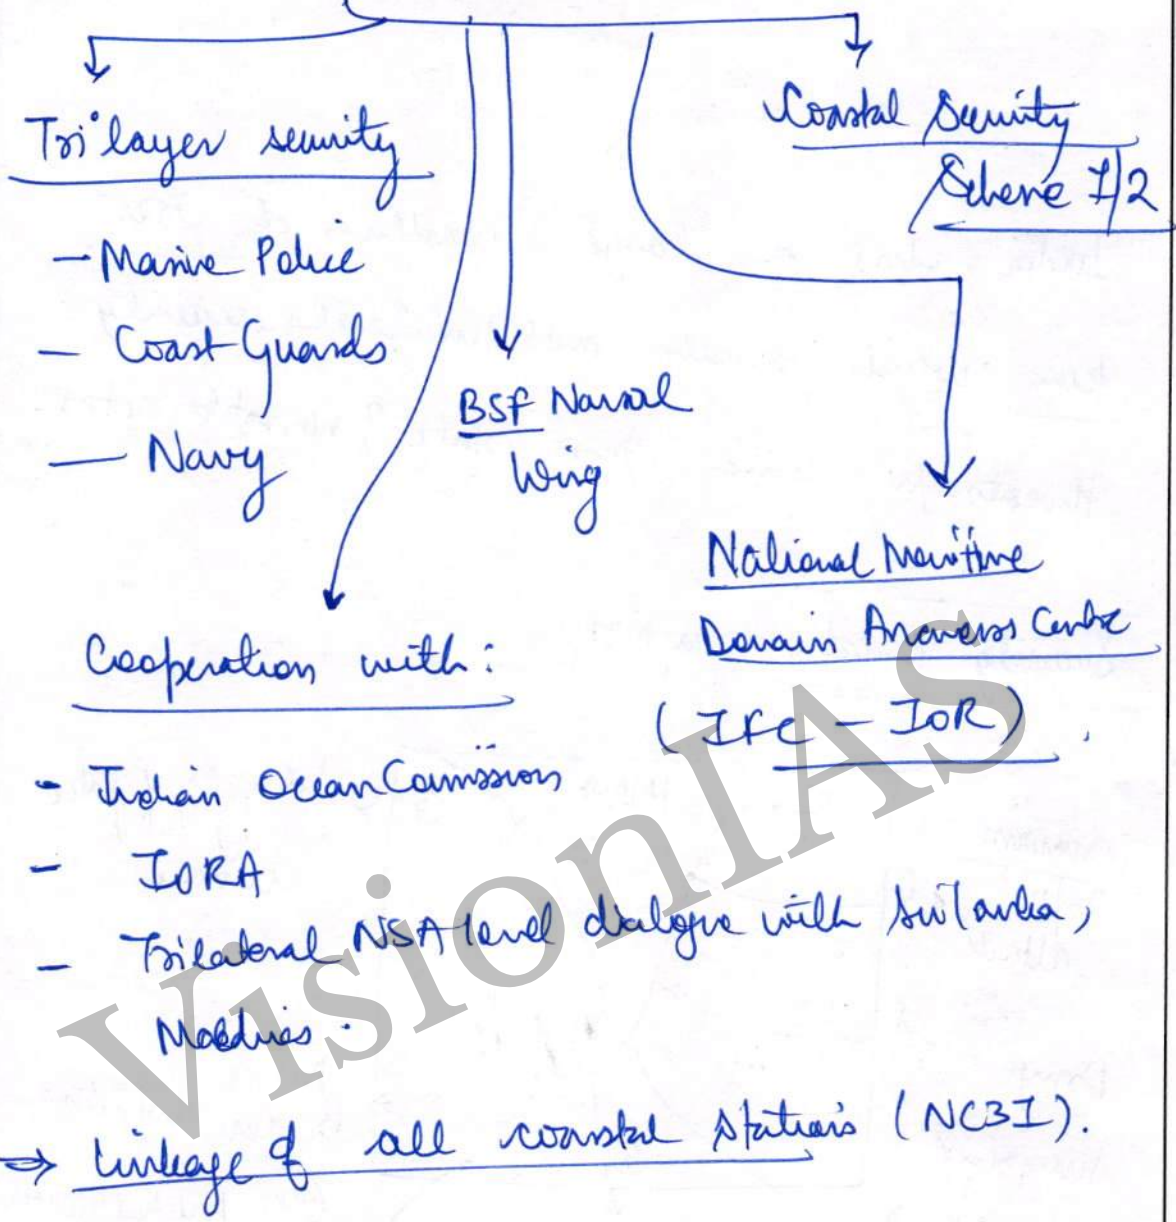 Tri layer security
- Marine Police
- Coast Guards
- Navy
BSF Naval
Wing
Coastal Security
Scheme 1/2
National Maritime
Domain Awareness Centre
(IFC - IOR).
Cooperation with:
- Indian Ocean Comission
- IORA
- Trilateral NSA level dialogue with Sri Lanka,
Maldives.
⇒ Linkage of all coastal stations (NC3I).
VisionIAS